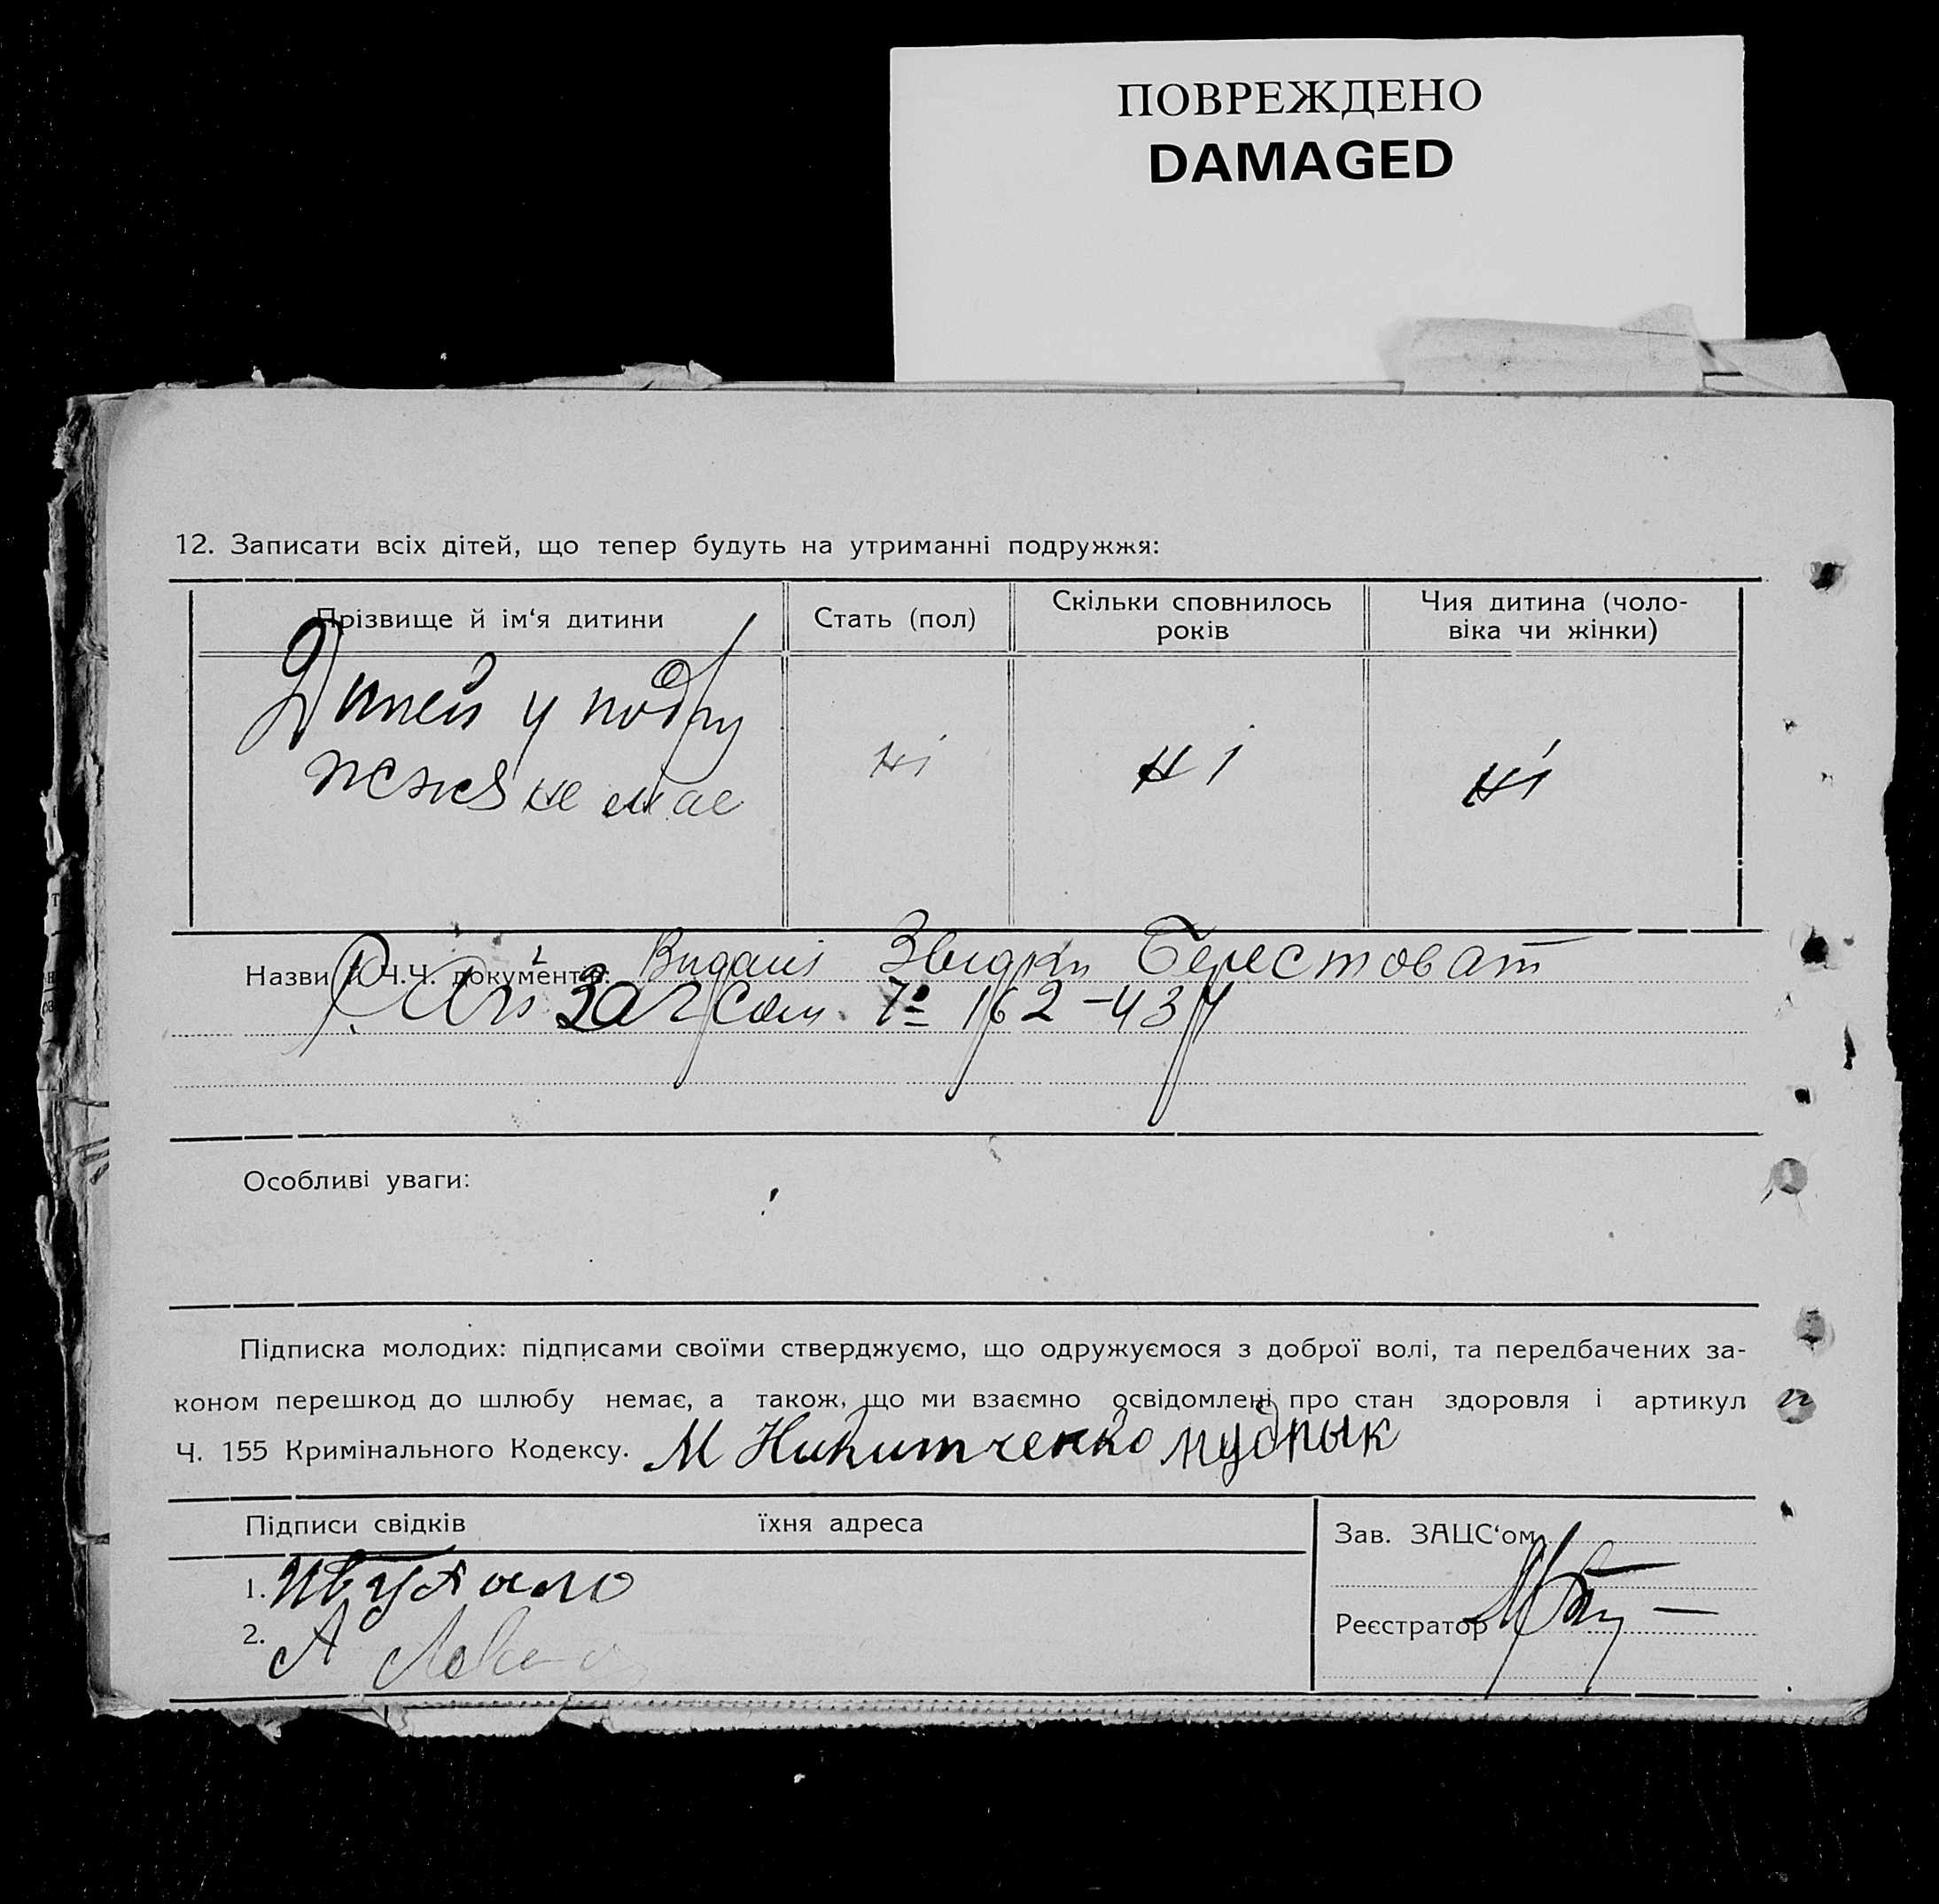 ПОВРЕЖДЕНО
DAMAGED
12. Записати всіх дітей, що тепер будуть на утриманні подружжя:
Прізвище й ім‘я дитини
Стать (пол)
Скільки сповнилось років
Чия дитина (чоло-
віка чи жінки)
Дитей у подру
жжя не має
ні
ні
ні
Назви й Ч.Ч. документів: Видані Звідки Берестоват
Загсом № 162-437
Особливі уваги:
Підписка молодих: підписами своїми стверджуємо, що одружуємося з доброї волі, та передбачених за-
коном перешкод до шлюбу немає, а також, що ми взаємно освідомлені про стан здоровля і артикул
Ч. 155 Кримінального Кодексу. М Никитченко мудрык
Підписи свідків їхня адреса
1.
2. А
Зав. ЗАЦС‘ом
Реєстратор